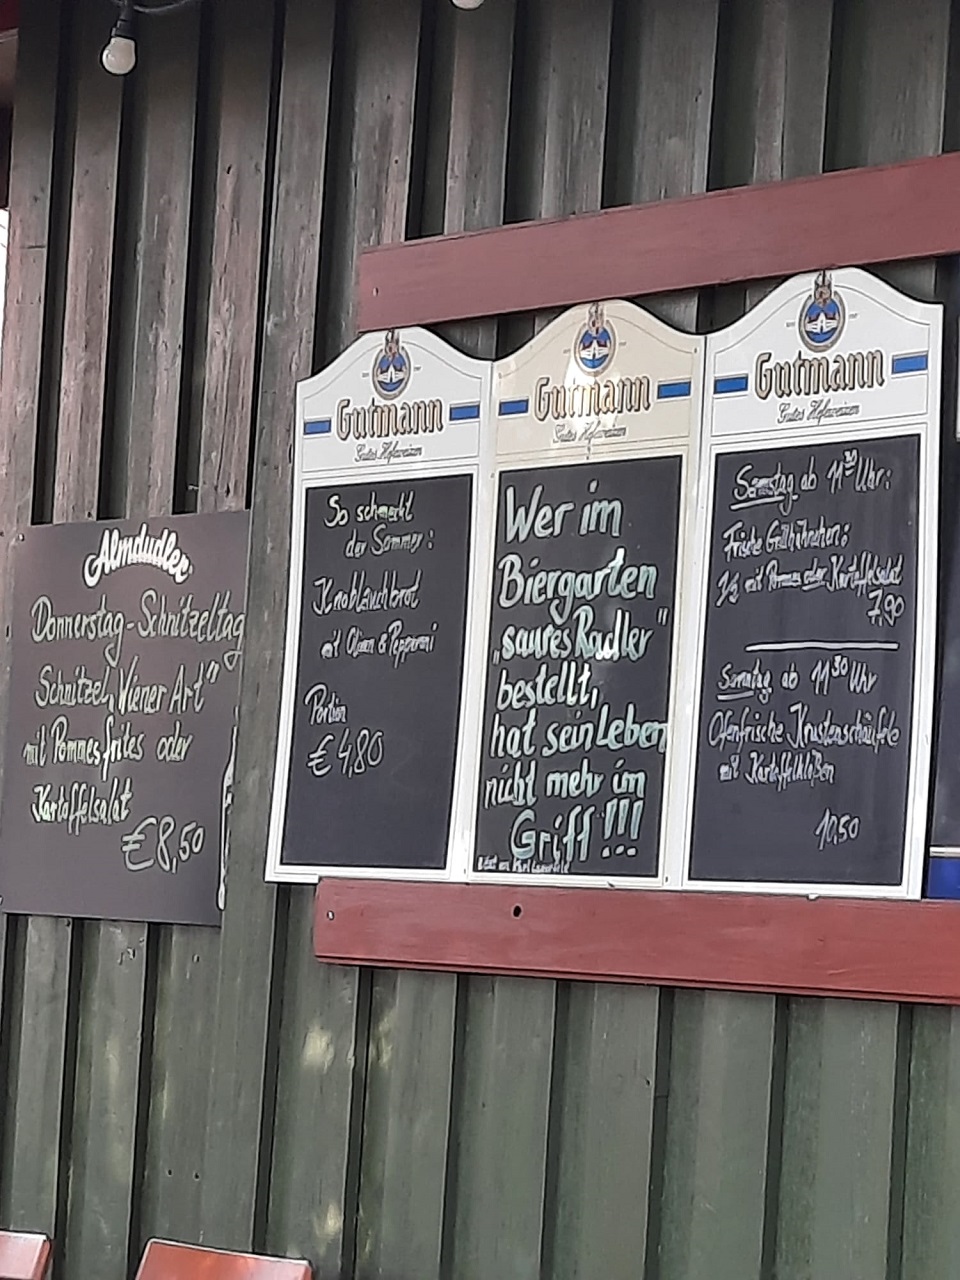 Almdudler
Donnerstag-Schnitzeltag
Schnitzel „Wiener Art"
mit Pommes frites oder
Kartoffelsalat
€ 8,50
Gutmann
Gutes Hefeweizen
So schmeckt
der Sommer:
Knoblauchbrot
mit Oliven & Pepperoni
Portion
€ 4,80
Gutmann
Gutes Hefeweizen
Wer im
Biergarten
„saures Radler"
bestellt,
hat sein Leben
nicht mehr im
Griff !!!
Karl Lagerfeld
Gutmann
Gutes Hefeweizen
Samstag ab 11 30 Uhr:
Frische Grillhähnchen:
1/2 mit Pommes oder Kartoffelsalat
7,90
Sonntag ab 11 30 Uhr
Ofenfrische Krustenschäufele
mit Kartoffelklößen
10,50